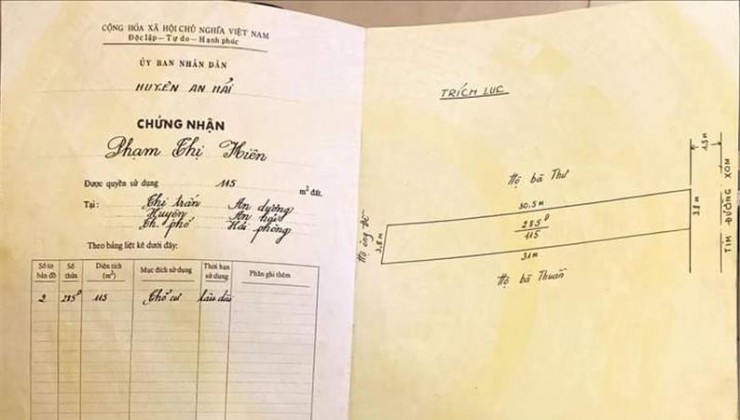 CỘNG HÒA XÃ HỘI CHỦ NGHĨA VIỆT NAM
Độc lập - Tự do - Hạnh phúc
ỦY BAN NHÂN DÂN
HUYỆN AN HẢI
CHỨNG NHẬN
Phạm Thị Hiên
Được quyền sử dụng 115 m² đất.
Tại: Thị trấn An dương
Huyện An hải
Th. phố Hải phòng
Theo bảng liệt kê dưới đây:
Số tờ bản đồ Số thửa Diện tích (m²) Mục đích sử dụng Thời hạn sử dụng Phần ghi thêm
2 285D 115 Thổ cư Lâu dài
TRÍCH LỤC
Hộ bà Thư
30.5m
285D
115
31m
Hộ bà Thuấn
3.8m
3.8m
1.5m
TIM ĐƯỜNG XÓM